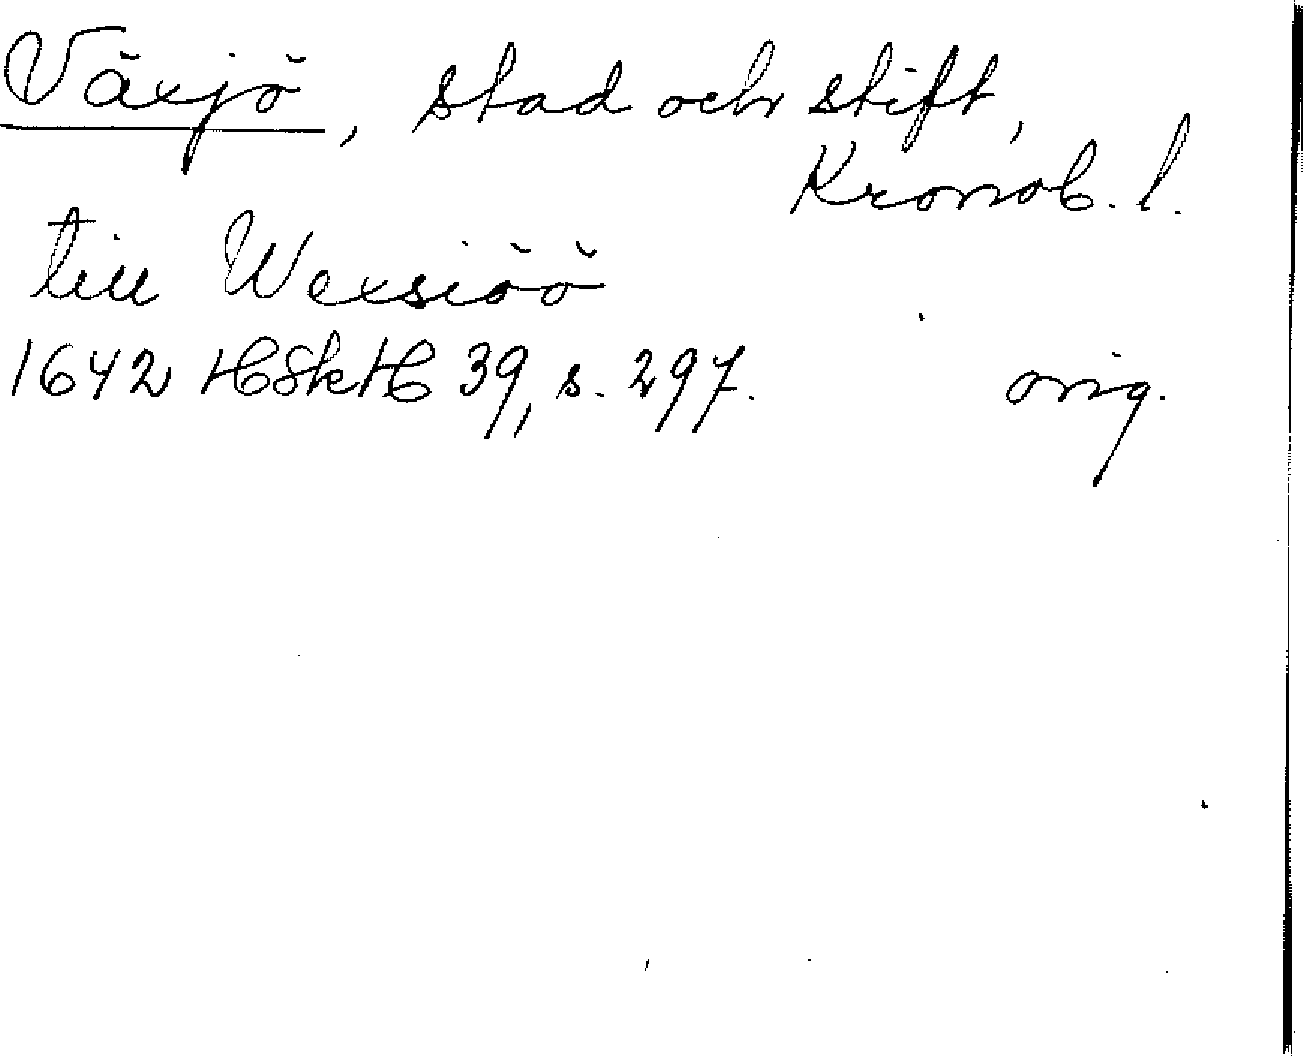 Växjö, stad och stift,
Kronob. l.
till Wexsiöö
1642 HSkH 39, s. 297. orig.